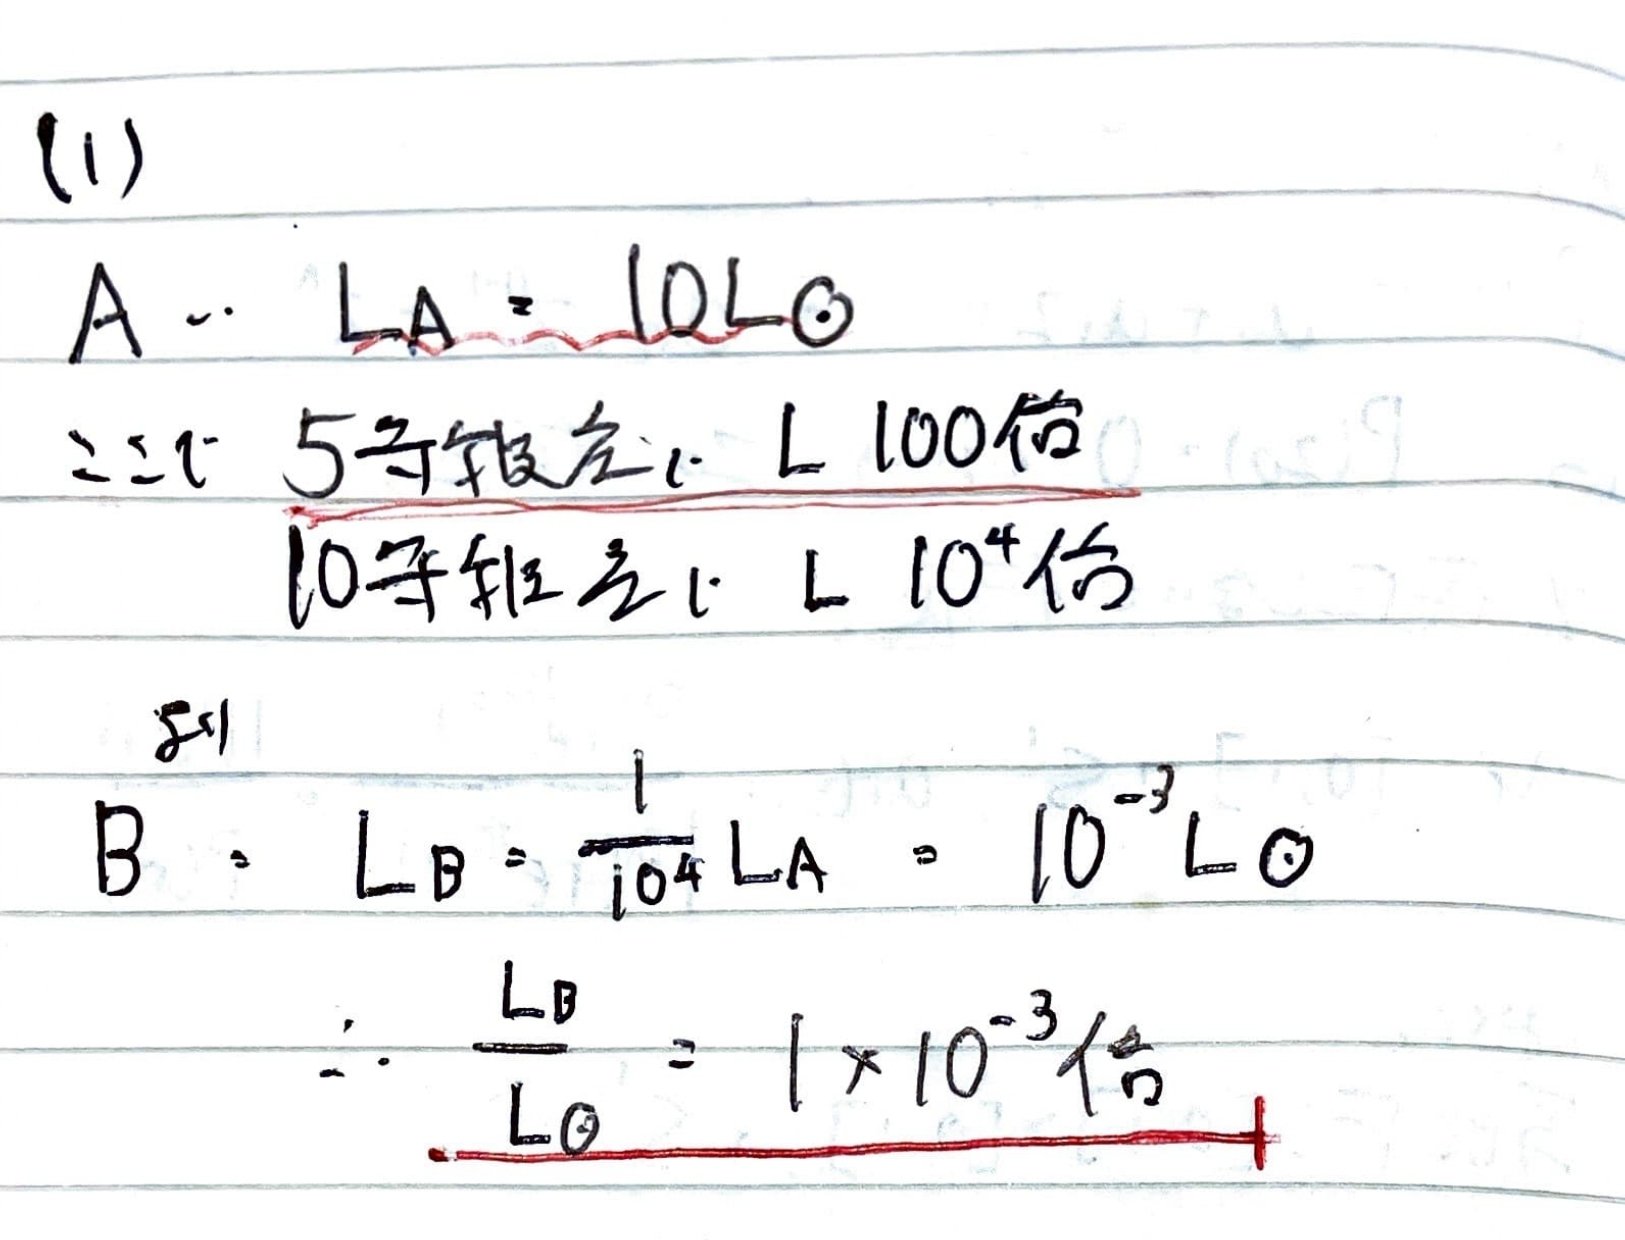 (1)
A … LA = 10L⊙
ここで 5等級差で L 100倍
10等級差で L 10⁴倍
より
B … LB = 1/10⁴ LA = 10⁻³ L⊙
∴ LB/L⊙ = 1 × 10⁻³倍